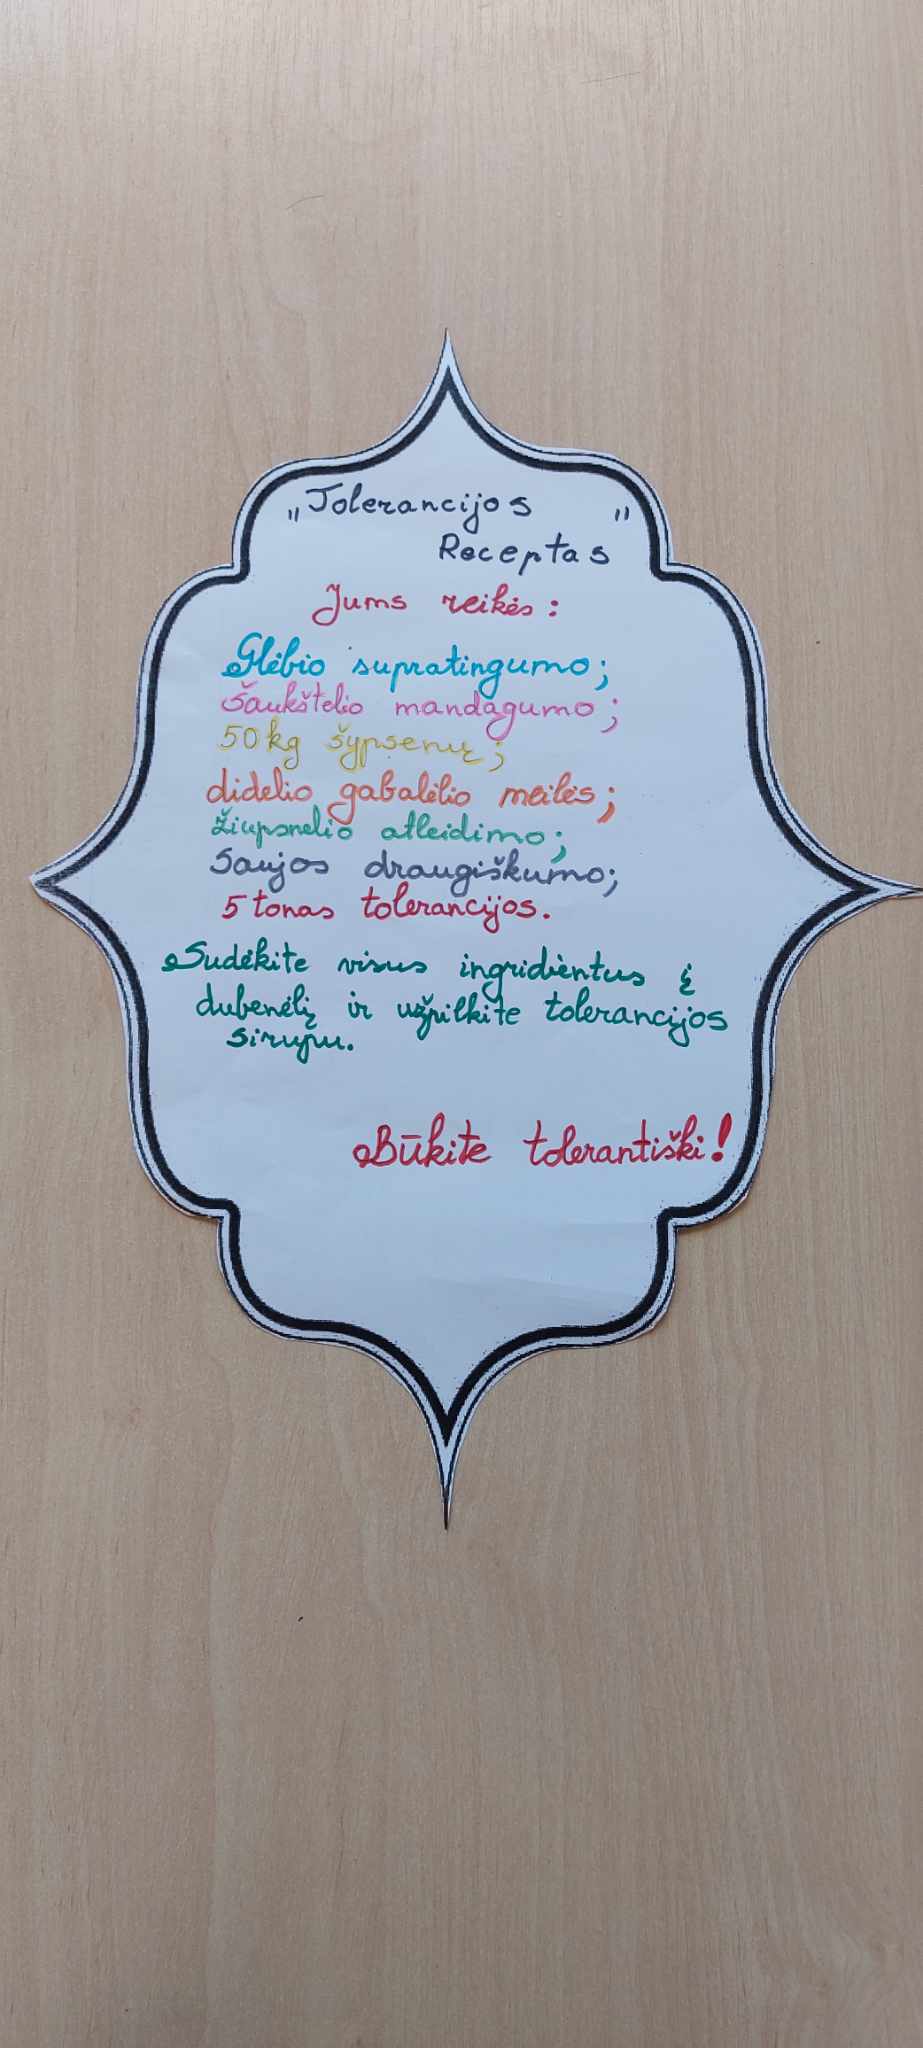 „Tolerancijos
Receptas"
Jums reikės:
Glėbio supratingumo;
Šaukštelio mandagumo;
50kg šypsenų;
didelio gabalėlio meilės;
žiupsnelio atleidimo;
Saujos draugiškumo;
5 tonas tolerancijos.
Sudėkite visus ingridientus į
dubenėlį ir užpilkite tolerancijos
sirupu.
Būkite tolerantiški!